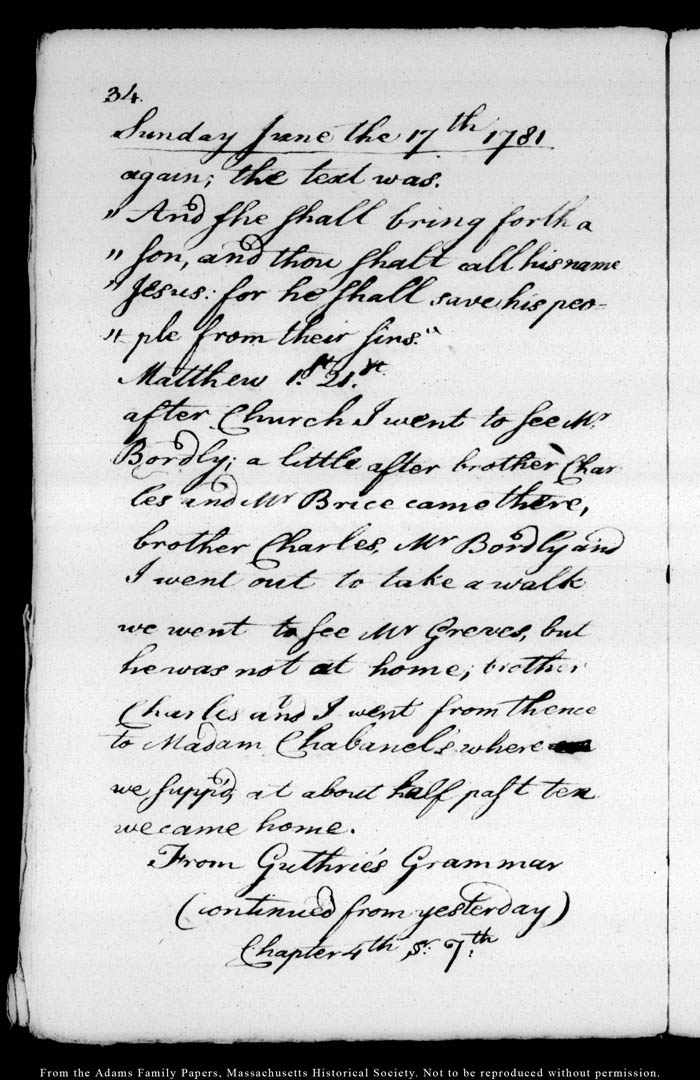 34.
Sunday June the 17th 1781
again; the text was.
" And she shall bring forth a
" son, and thou shalt call his name
" Jesus: for he shall save his peo-
" ple from their sins."
Matthew 1.st 21.st
after Church I went to see Mr
Bordly; a little after brother Char
les and Mr Brice came there,
brother Charles, Mr Bordly and
I went out to take a walk
we went to see Mr Greves, but
he was not at home; brother
Charles and I went from thence
to Madam Chabanel's where
we supp'd, at about half past ten
we came home.
From Guthrie's Grammar
(continued from yesterday)
Chapter 4th S: 7th
From the Adams Family Papers, Massachusetts Historical Society. Not to be reproduced without permission.